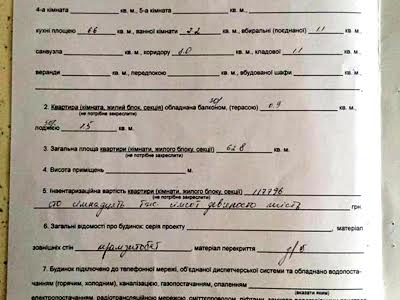 4-а кімната кв. м., 5-а кімната кв. м.
кухні площею 6.6 кв. м., ванної кімнати 2.2 кв. м., вбиральні (поєднаної) 1.1
санвузла кв. м., коридору кв. м., кладової 1.1
веранди кв. м., передпокою кв. м., вбудованої шафи
кв. м.
2. Квартира (кімната, жилий блок, секція) обладнана балконом, (терасою) 0.9
(не потрібне закреслити)
лоджією 1.5 кв. м.
3. Загальна площа квартири (кімнати, жилого блоку, секції) 62.8 кв. м.
(не потрібне закреслити)
4. Висота приміщень м.
5. Інвентаризаційна вартість квартири (кімнати, жилого блоку, секції) 117796
(не потрібне закреслити)
сто сімнадцять тис. сімсот девяносто шість грн.
6. Загальні відомості про будинок: серія проекту , матеріал
зовнішніх стін матеріал перекриття
7. Будинок підключено до телефонної мережі, об'єднаної диспетчерської системи та обладнано водопоста-
чанням (горячим, холодним), каналізацією, газопостачанням, опаленням
(вказати яким)
електропостачанням, радіотрансляційною мережею, сміттєпроводом, ліфтами